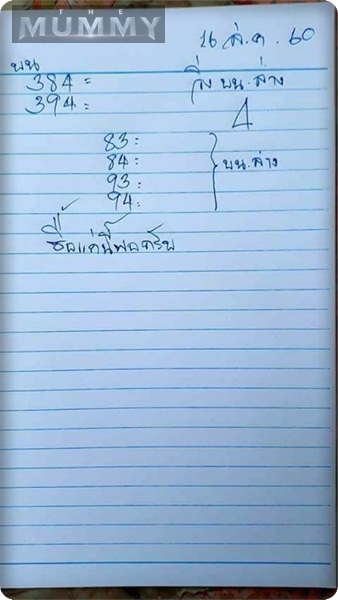 THE
MUMMY
16 ส.ค. 60
บน
384 =
394 =
วิ่ง บน.ล่าง
4
83 :
84 :
93 :
94 :
บน.ล่าง
ซื้อแค่นี้พอครับ